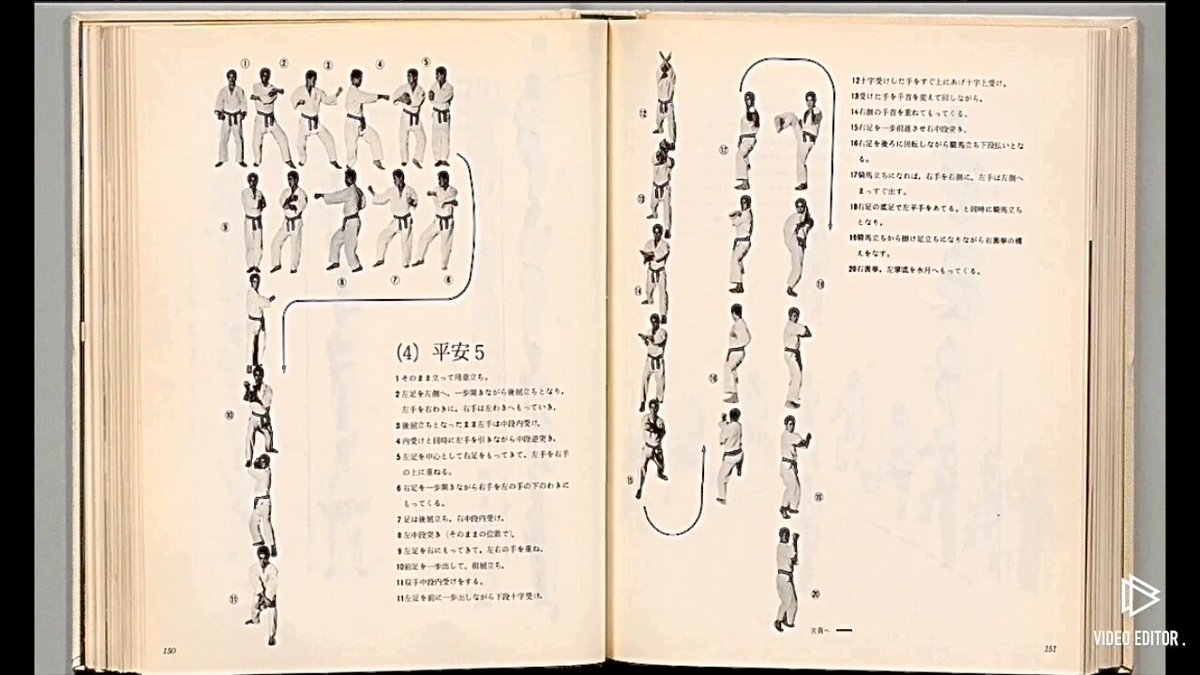 (4) 平安5
1 そのまま立って用意立ち。
2 左足を左側へ,一歩開きながら後屈立ちとなり,
左手を右わきに,右手は左わきへもっていき,
3 後屈立ちとなったまま左手は中段内受け,
4 内受けと同時に左手を引きながら中段逆突き,
5 左足を中心として右足をもってきて,左手を右手
の上に重ねる。
6 右足を一歩開きながら右手を左の手の下のわきに
もってくる。
7 足は後屈立ち,右中段内受け,
8 左中段突き(そのままの位置で),
9 左足を右にもってきて,左右の手を重ね,
10 前足を一歩出して,前屈立ち,
11 双手中段内受けをする。
11 左足を前に一歩出しながら下段十字受け,
150
12 十字受けした手をすぐ上にあげ十字上受け,
13 受けた手を手首を変えて回しながら,
14 右側の手首を重ねてもってくる。
15 右足を一歩前進させ右中段突き,
16 右足を後ろに回転しながら騎馬立ち下段払いとな
る。
17 騎馬立ちになれば,右手を右側に,左手は左側へ
まっすぐ出す。
18 右足の底足で左平手をあてる。と同時に騎馬立ち
となり,
19 騎馬立ちから掛け足立ちになりながら右裏拳の構
えをなす。
20 右裏拳,左掌底を水月へもってくる。
次頁へ
151
VIDEO EDITOR.